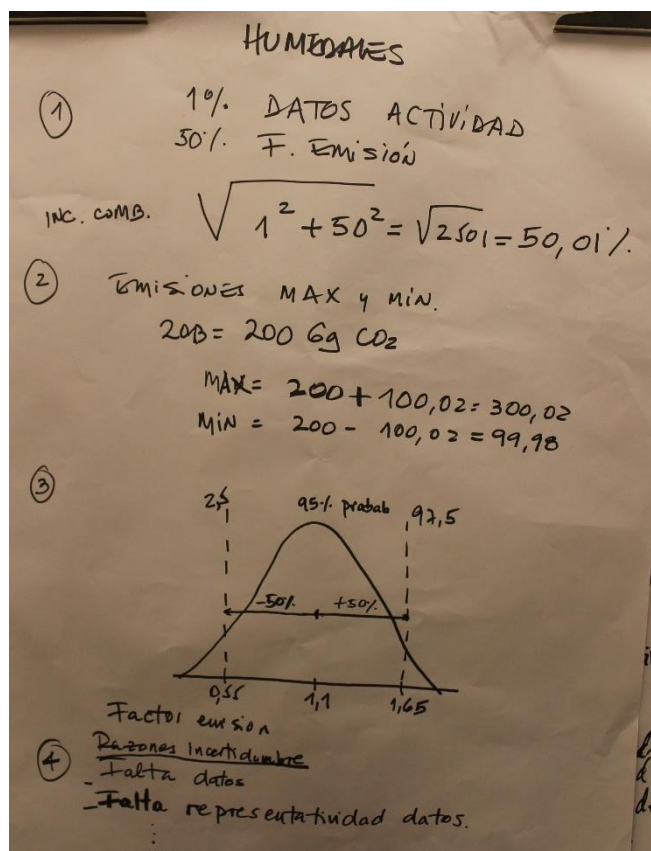 HUMEDALES
① 1%. DATOS ACTIVIDAD
50%. F. Emisión
INC. COMB. √1² + 50² = √2501 = 50,01%.
② EmisiONES MAX y MiN.
2013 = 200 Gg CO₂
MAX = 200 + 100,02 = 300,02
MiN = 200 - 100,02 = 99,98
③
2,5 95%. probab 97,5
-50%. +50%.
0,55 1,1 1,65
Factor emision
④ Razones incertidumbre
- Falta datos
- Falta representatividad datos.
⋮